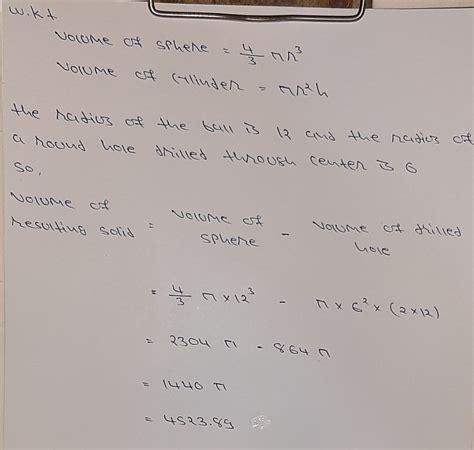 w.k.t
Volume of sphere = 4/3 πr³
Volume of cylinder = πr²h
the radius of the ball is 12 and the radius of
a round hole drilled through center is 6
So,
Volume of resulting solid = Volume of sphere - Volume of drilled hole
= 4/3 π × 12³ - π × 6² × (2×12)
= 2304 π - 864 π
= 1440 π
= 4523.89